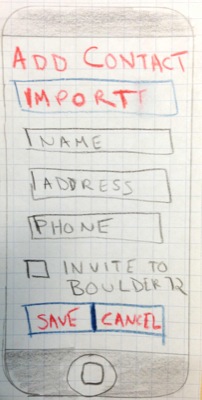 ADD CONTACT
IMPORT
NAME
ADDRESS
PHONE
INVITE TO
BOULDER
SAVE CANCEL